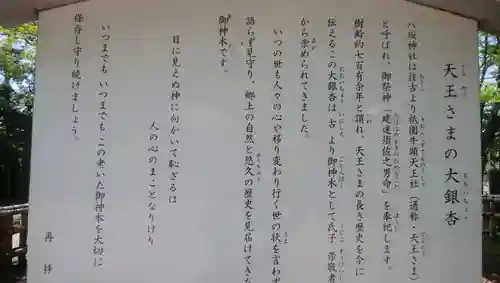 天王さまの大銀杏
八坂神社は往古より祇園牛頭天王社（通称・天王さま）
と呼ばれ、御祭神「建速須佐之男命」を奉祀します。
樹齢約七百有余年と謂れ、天王さまの長き歴史を今に
伝えるこの大銀杏は 古より御神木として氏子 崇敬者
から崇められてきました。
いつの世も人々の心や移り変わり行く世の状を言わず
語らず見守り、郷土の自然と悠久の歴史を見届けてきた
御神木です。
目に見えぬ神に向かいて恥ざるは
人の心のまことなりけり
いつまでも いつまでも この老いた御神木を大切に
保存し守り続けましょう。
再拝